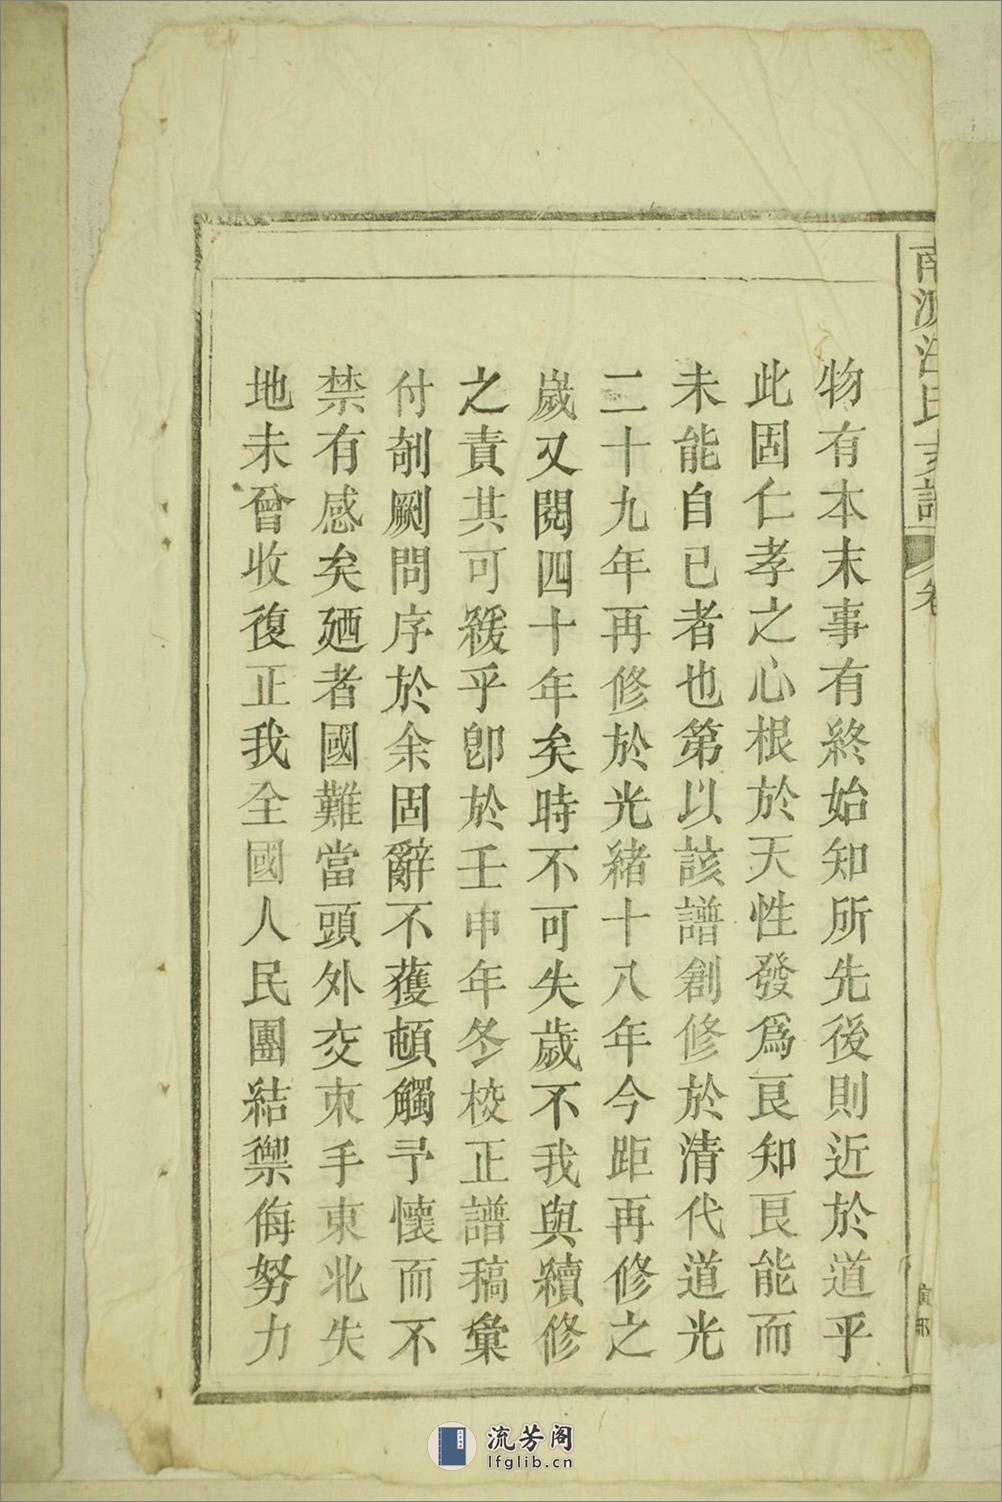 物有本末事有終始知所先後則近於道乎
此固仁孝之心根於天性發爲良知良能而
未能自已者也第以該譜創修於清代道光
二十九年再修於光緒十八年今距再修之
歲又閱四十年矣時不可失歲不我與續修
之責其可緩乎卽於壬申年冬校正譜稿彙
付剞劂問序於余固辭不獲頓觸予懷而不
禁有感矣廼者國難當頭外交束手東北失
地未曾收復正我全國人民團結禦侮努力
南源汪氏支譜
卷
流芳阁
lfglib.cn